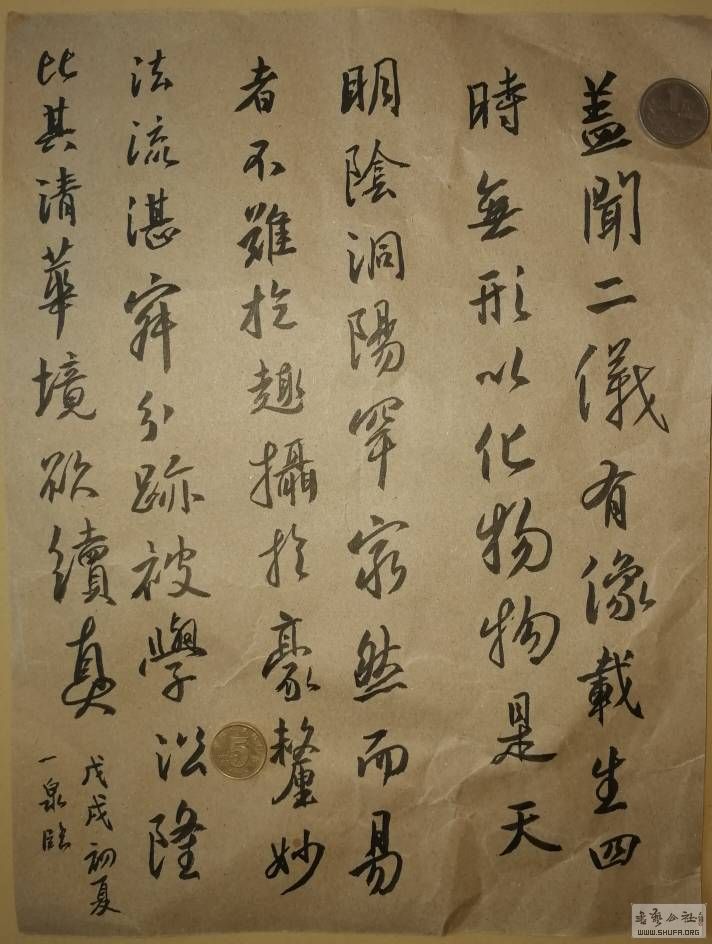 盖聞二儀有像載生四
時無形以化物物是天
明陰洞陽罕窮然而易
者不難於趣攝於豪釐妙
法流湛寂分跡被學沿隆
比其清華境欲續真
戊戌初夏
一泉臨
5
书艺公社
WWW.SHUFA.ORG